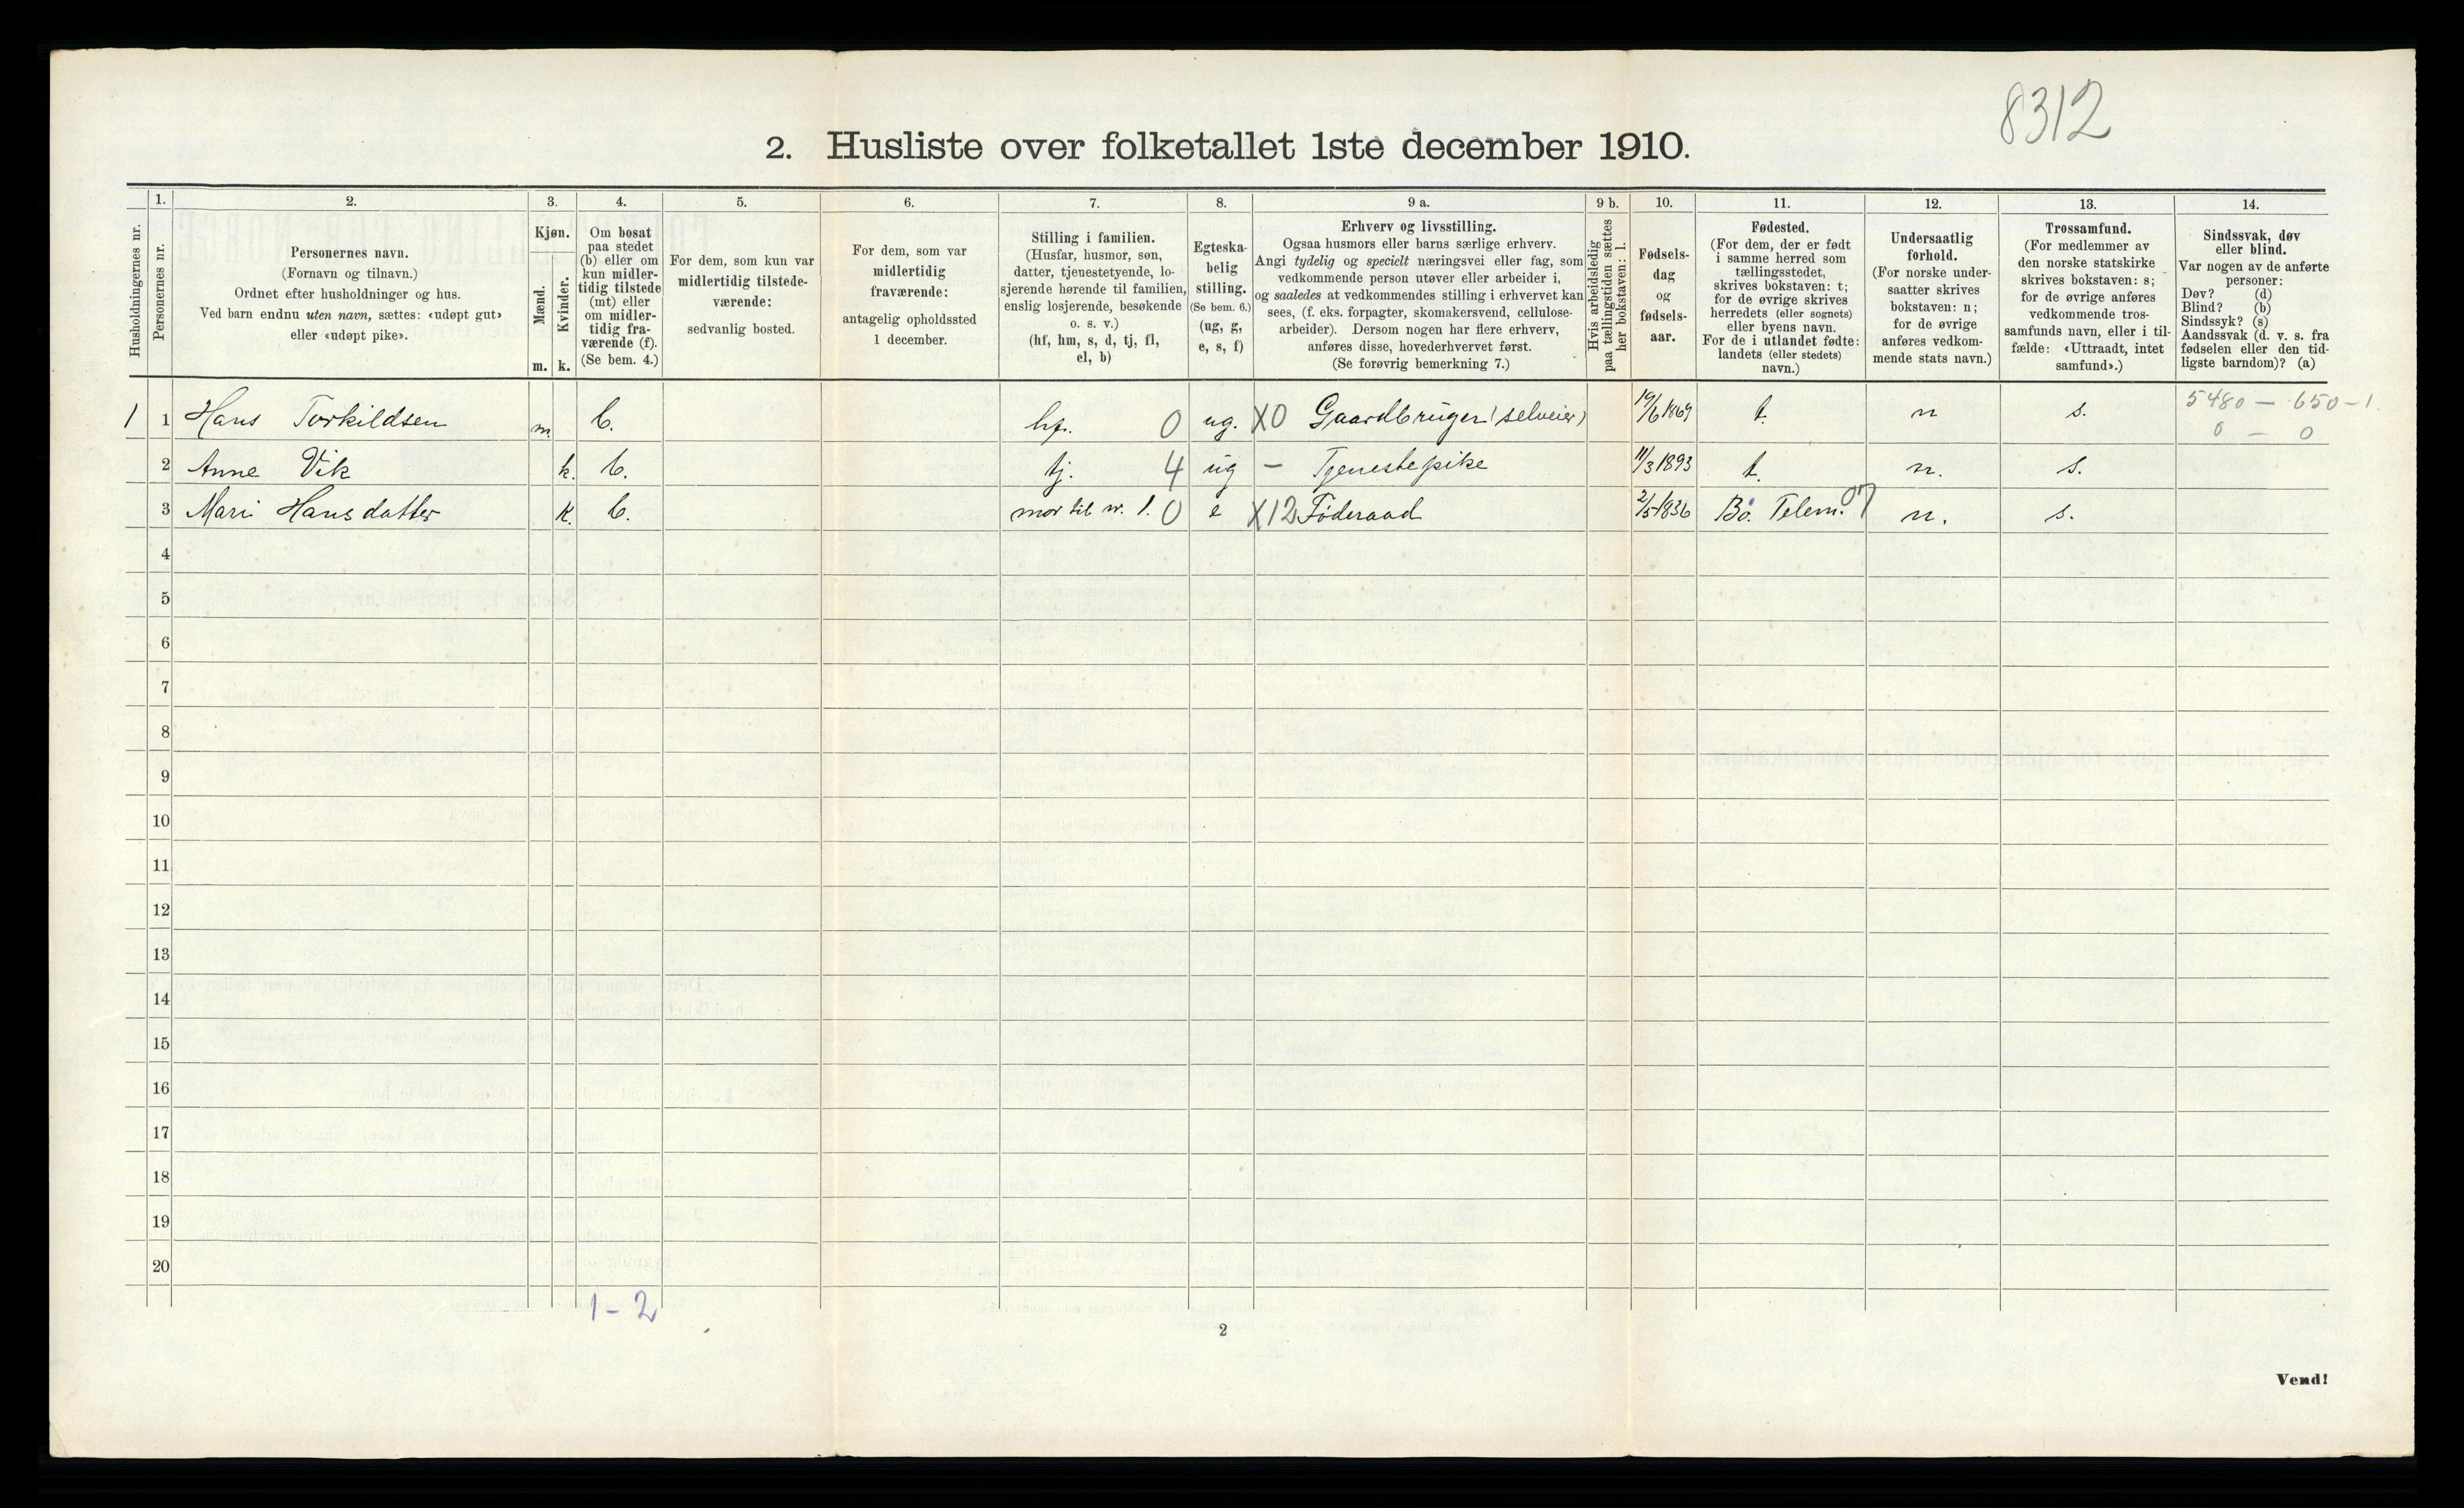 8312
2. Husliste over folketallet 1ste december 1910.
Husholdningernes nr.
1. Personernes nr.
2. Personernes navn.
(Fornavn og tilnavn.)
Ordnet efter husholdninger og hus.
Ved barn endnu uten navn, sættes: «udøpt gut»
eller «udøpt pike».
3. Kjøn.
Mænd. m.
Kvinder. k.
4. Om bosat
paa stedet
(b) eller om
kun midler-
tidig tilstede
(mt) eller
om midler-
tidig fra-
værende (f).
(Se bem. 4.)
5. For dem, som kun var
midlertidig tilstede-
værende:
sedvanlig bosted.
6. For dem, som var
midlertidig
fraværende:
antagelig opholdssted
1 december.
7. Stilling i familien.
(Husfar, husmor, søn,
datter, tjenestetyende, lo-
sjerende hørende til familien,
enslig losjerende, besøkende
o. s. v.)
(hf, hm, s, d, tj, fl,
el, b)
8. Egteska-
belig
stilling.
(Se bem. 6.)
(ug, g,
e, s, f)
9 a. Erhverv og livsstilling.
Ogsaa husmors eller barns særlige erhverv.
Angi tydelig og specielt næringsvei eller fag, som
vedkommende person utøver eller arbeider i,
og saaledes at vedkommendes stilling i erhvervet kan
sees, (f. eks. forpagter, skomakersvend, cellulose-
arbeider). Dersom nogen har flere erhverv,
anføres disse, hovederhvervet først.
(Se forøvrig bemerkning 7.)
9 b. Hvis arbeidsledig
paa tællingstiden sættes
her bokstaven: l.
10. Fødsels-
dag
og
fødsels-
aar.
11. Fødested.
(For dem, der er født
i samme herred som
tællingsstedet,
skrives bokstaven: t;
for de øvrige skrives
herredets (eller sognets)
eller byens navn.
For de i utlandet fødte:
landets (eller stedets)
navn.)
12. Undersaatlig
forhold.
(For norske under-
saatter skrives
bokstaven: n;
for de øvrige
anføres vedkom-
mende stats navn.)
13. Trossamfund.
(For medlemmer av
den norske statskirke
skrives bokstaven: s;
for de øvrige anføres
vedkommende tros-
samfunds navn, eller i til-
fælde: «Uttraadt, intet
samfund».)
14. Sindssvak, døv
eller blind.
Var nogen av de anførte
personer:
Døv? (d)
Blind? (b)
Sindssyk? (s)
Aandssvak (d. v. s. fra
fødselen eller den tid-
ligste barndom)? (a)
1 1 Hans Torkildsen m. b. hf. 0 ug. X0 Gaardbruger (selveier) 19/6 1869 t. n s. 5480 - 650-1.
0 - 0
2 Anne Vik k. b. tj. 4 ug - Tjenestepike 11/3 1893 t. n. s.
3 Mari Hansdatter k. b. mor til nr. 1. 0 e X12 Føderaad 2/5 1836 Bø. Telem. 07 n. s.
4
5
6
7
8
9
10
11
12
13
14
15
16
17
18
19
20
1-2
2
Vend!